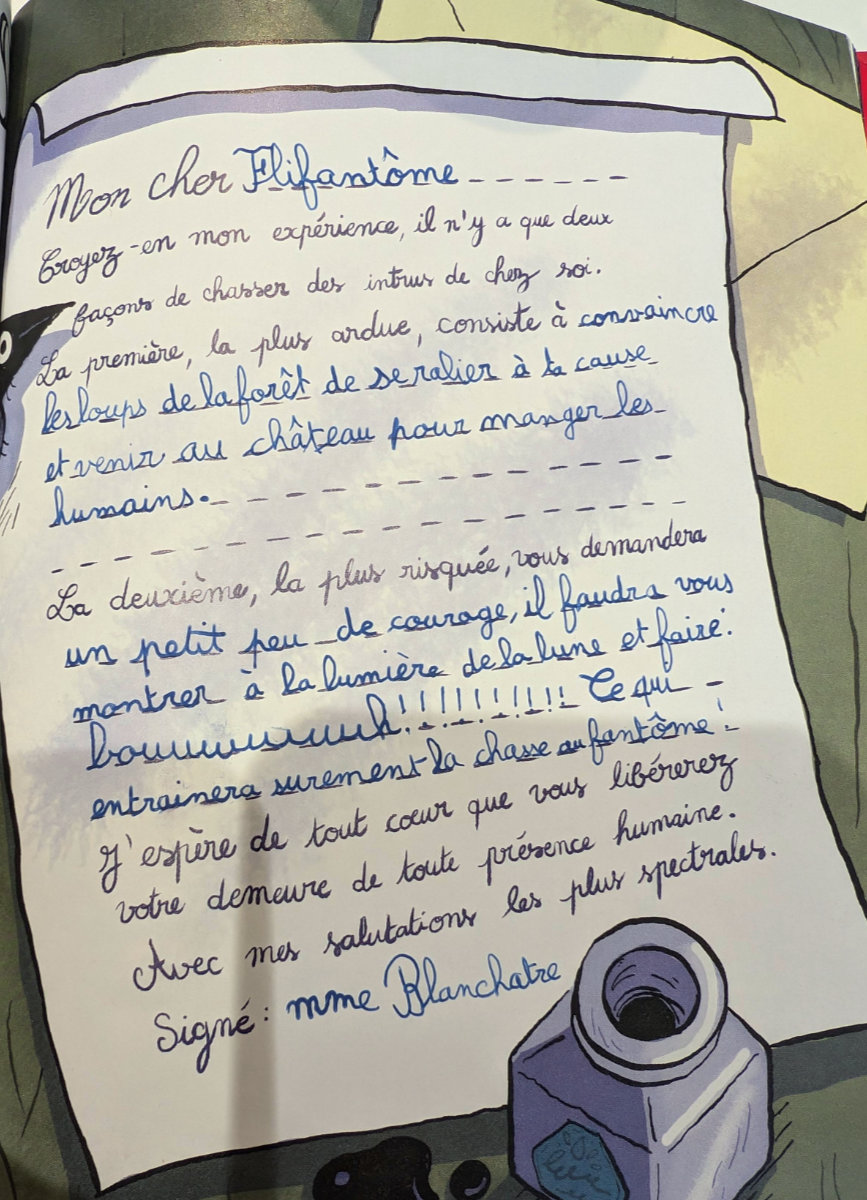 Mon cher Flifantôme
Croyez-en mon expérience, il n'y a que deux
façons de chasser des intrus de chez soi.
La première, la plus ardue, consiste à convaincre
les loups de la forêt de se ralier à ta cause
et venir au château pour manger les
humains.
La deuxième, la plus risquée, vous demandera
un petit peu de courage, il faudra vous
montrer à la lumière de la lune et faire:
bouuuuuuuuh!!!!!!!!!!! Ce qui
entrainera surement la chasse au fantôme!
J'espère de tout cœur que vous libérerez
votre demeure de toute présence humaine.
Avec mes salutations les plus spectrales.
Signé: mme Blanchatre